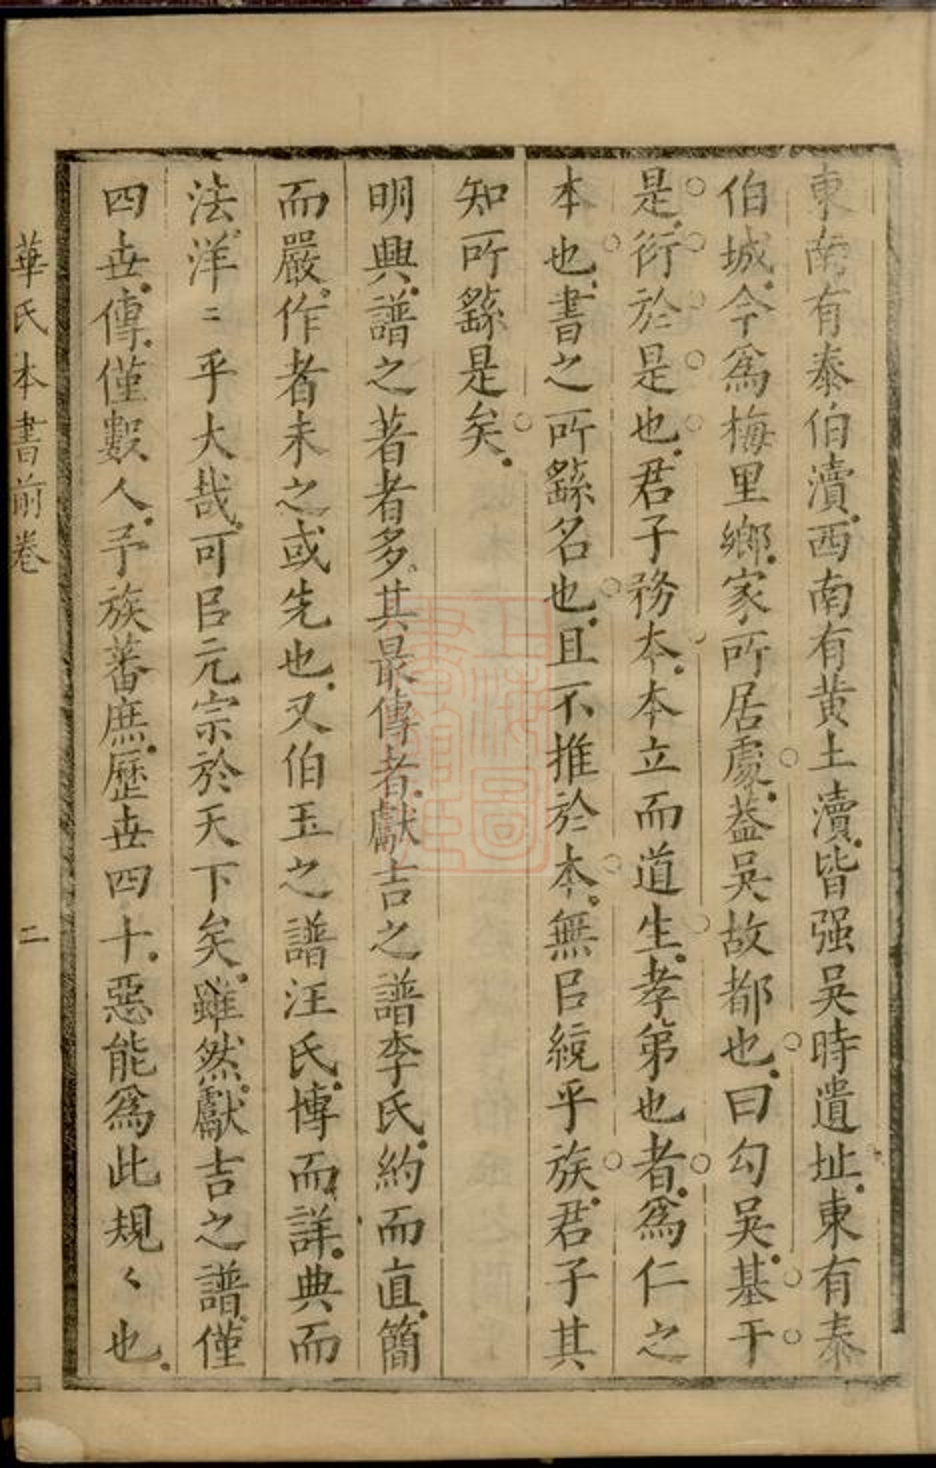 東南有泰伯瀆西南有黄土瀆皆强吳時遺址東有泰
伯城今爲梅里鄉家所居處葢吳故都也曰勾吳基于
是衍於是也君子務本本立而道生孝第也者爲仁之
本也書之所繇名也且不推於本無㠯統乎族君子其
知所繇是矣
明興譜之著者多其最傳者獻吉之譜李氏約而直簡
而嚴作者未之或先也又伯玉之譜汪氏博而詳典而
法洋〻乎大哉可㠯元宗於天下矣雖然獻吉之譜僅
四世傳僅數人予族蕃庶歷世四十惡能爲此規〻也
華氏本書前卷
二
上海圖書館藏